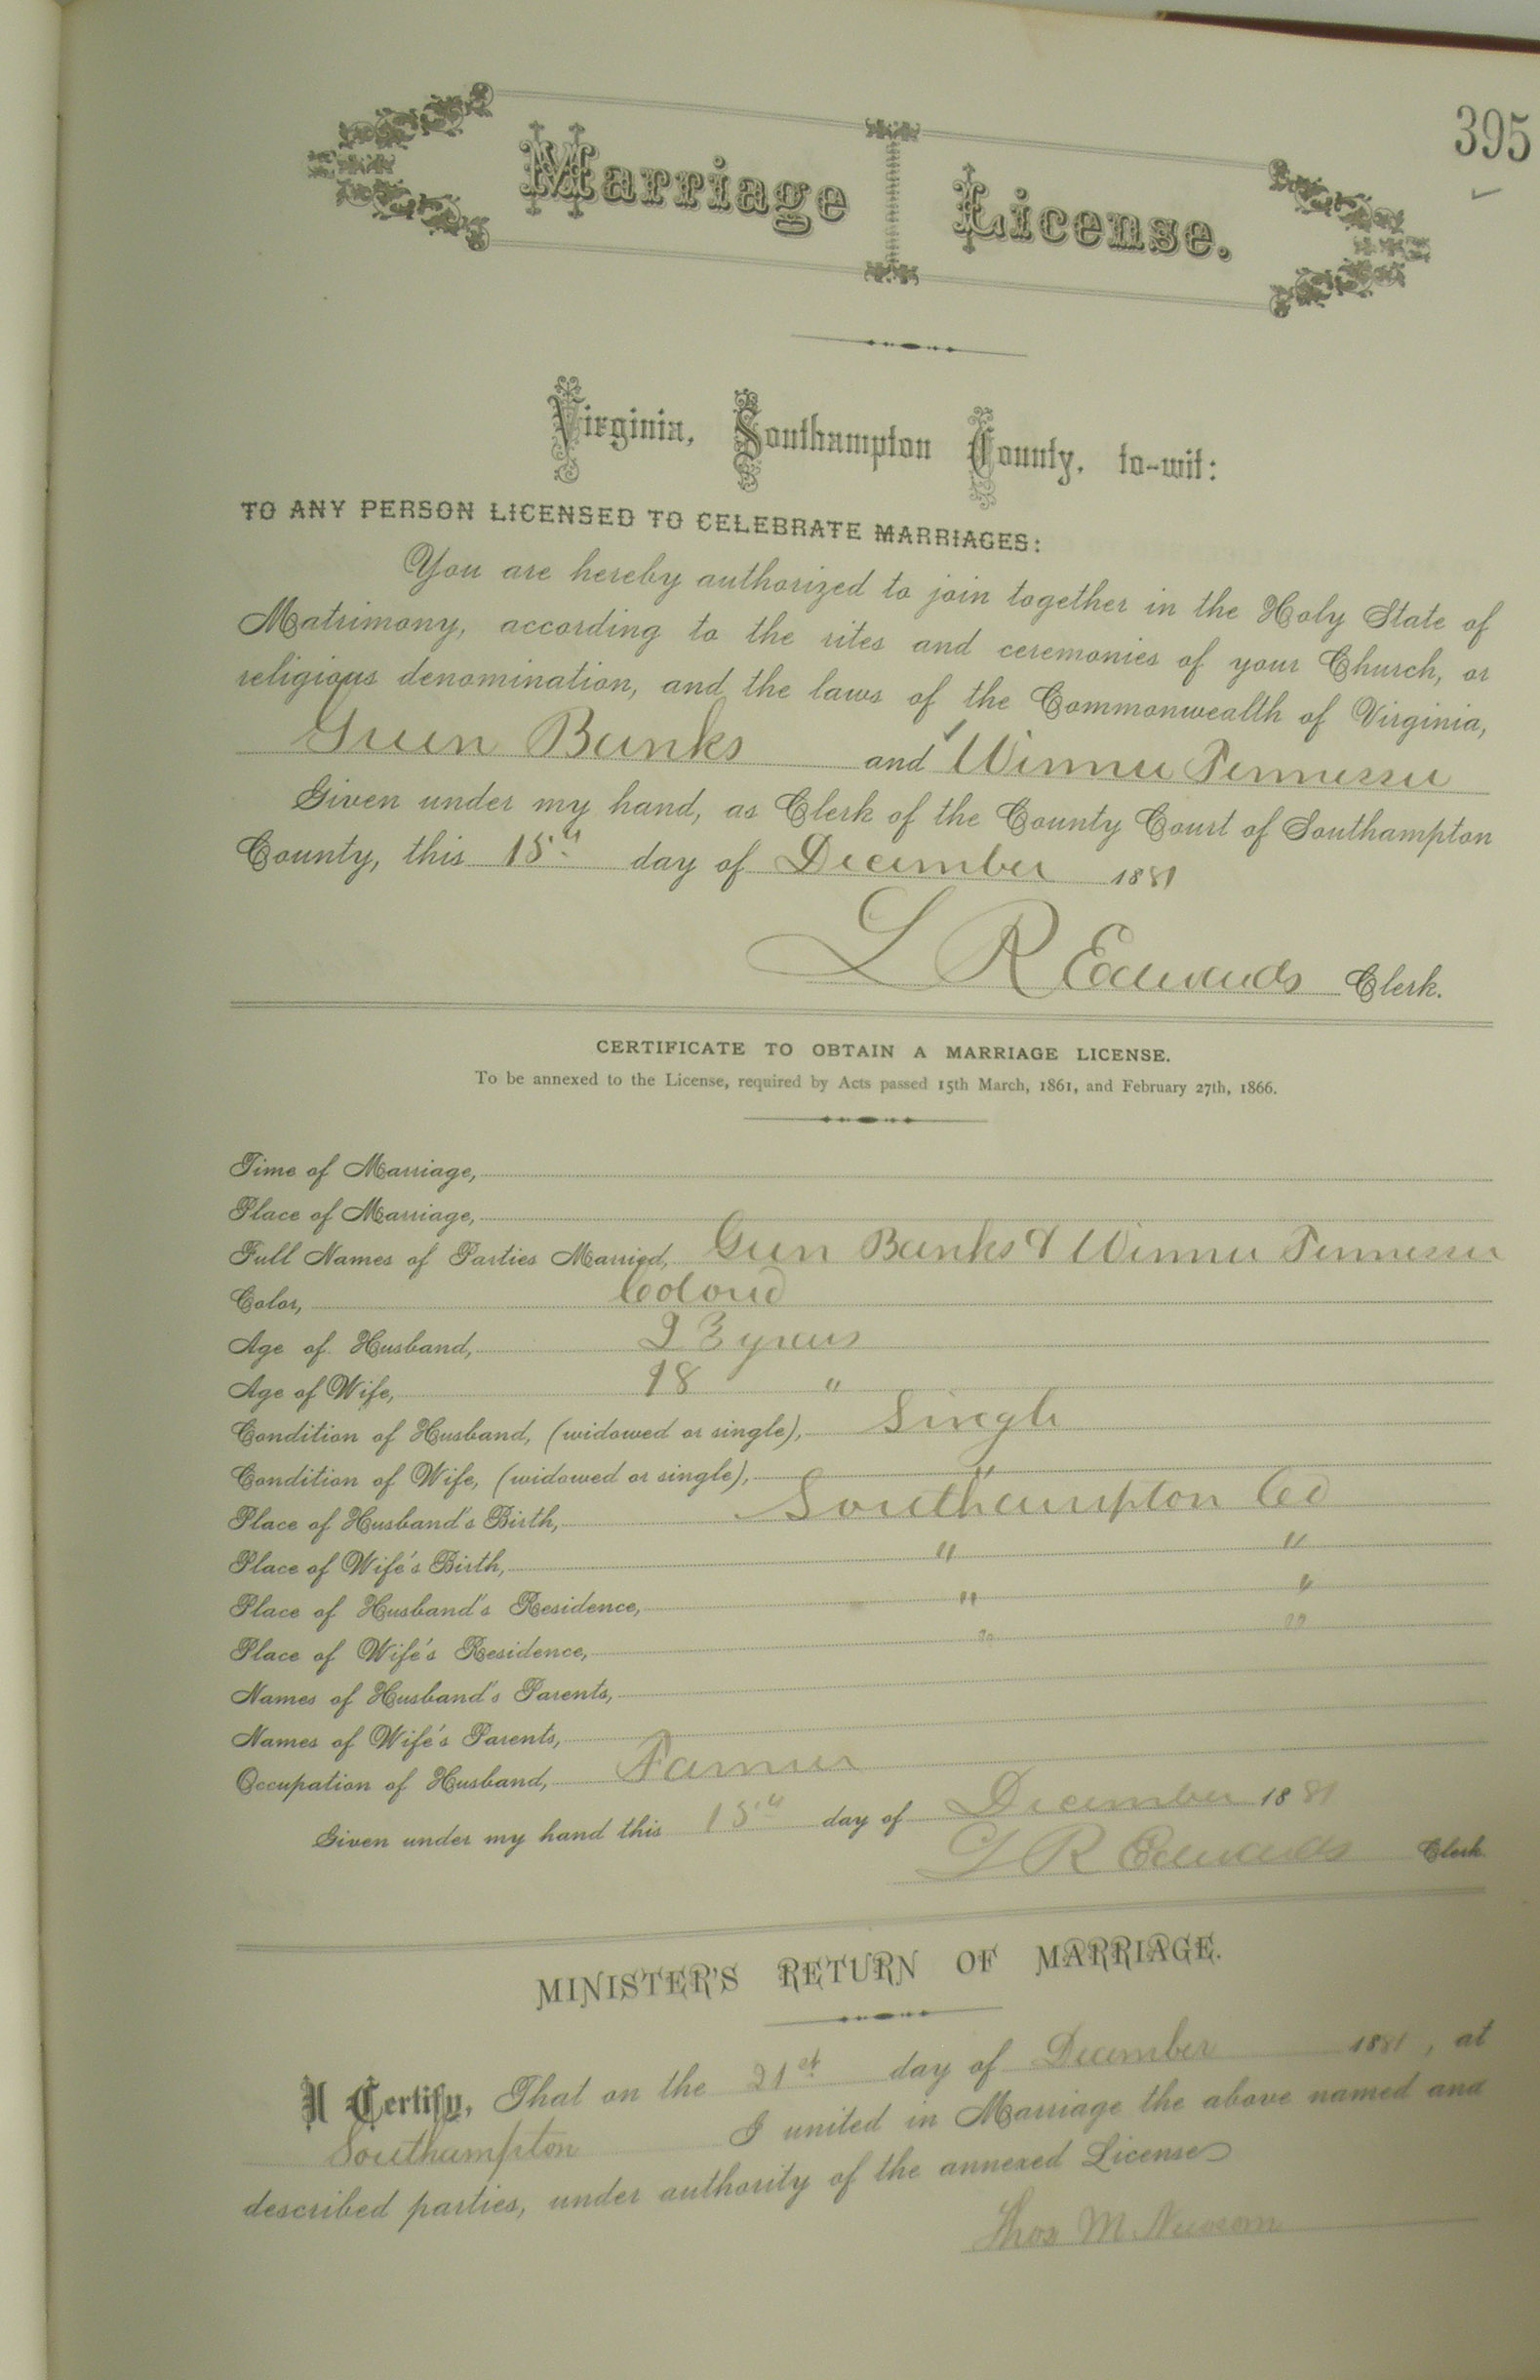 395
Marriage License.
Virginia, Southampton County, to-wit:
TO ANY PERSON LICENSED TO CELEBRATE MARRIAGES:
You are hereby authorized to join together in the Holy State of
Matrimony, according to the rites and ceremonies of your Church, or
religious denomination, and the laws of the Commonwealth of Virginia,
Green Banks and Winnie Tennessee
Given under my hand, as Clerk of the County Court of Southampton
County, this 15th day of December 1881
L R Edwards Clerk.
CERTIFICATE TO OBTAIN A MARRIAGE LICENSE.
To be annexed to the License, required by Acts passed 15th March, 1861, and February 27th, 1866.
Time of Marriage,
Place of Marriage,
Full Names of Parties Married, Green Banks & Winnie Tennessee
Color, Colored
Age of Husband, 23 years
Age of Wife, 18 "
Condition of Husband, (widowed or single), Single
Condition of Wife, (widowed or single), "
Place of Husband's Birth, Southampton Co
Place of Wife's Birth, " "
Place of Husband's Residence, " "
Place of Wife's Residence, " "
Names of Husband's Parents,
Names of Wife's Parents,
Occupation of Husband, Farmer
Given under my hand this 15th day of December 1881
L R Edwards Clerk
MINISTER'S RETURN OF MARRIAGE.
I Certify, That on the 21st day of December 1881, at
Southampton I united in Marriage the above named and
described parties, under authority of the annexed License
Thos M. Newsom